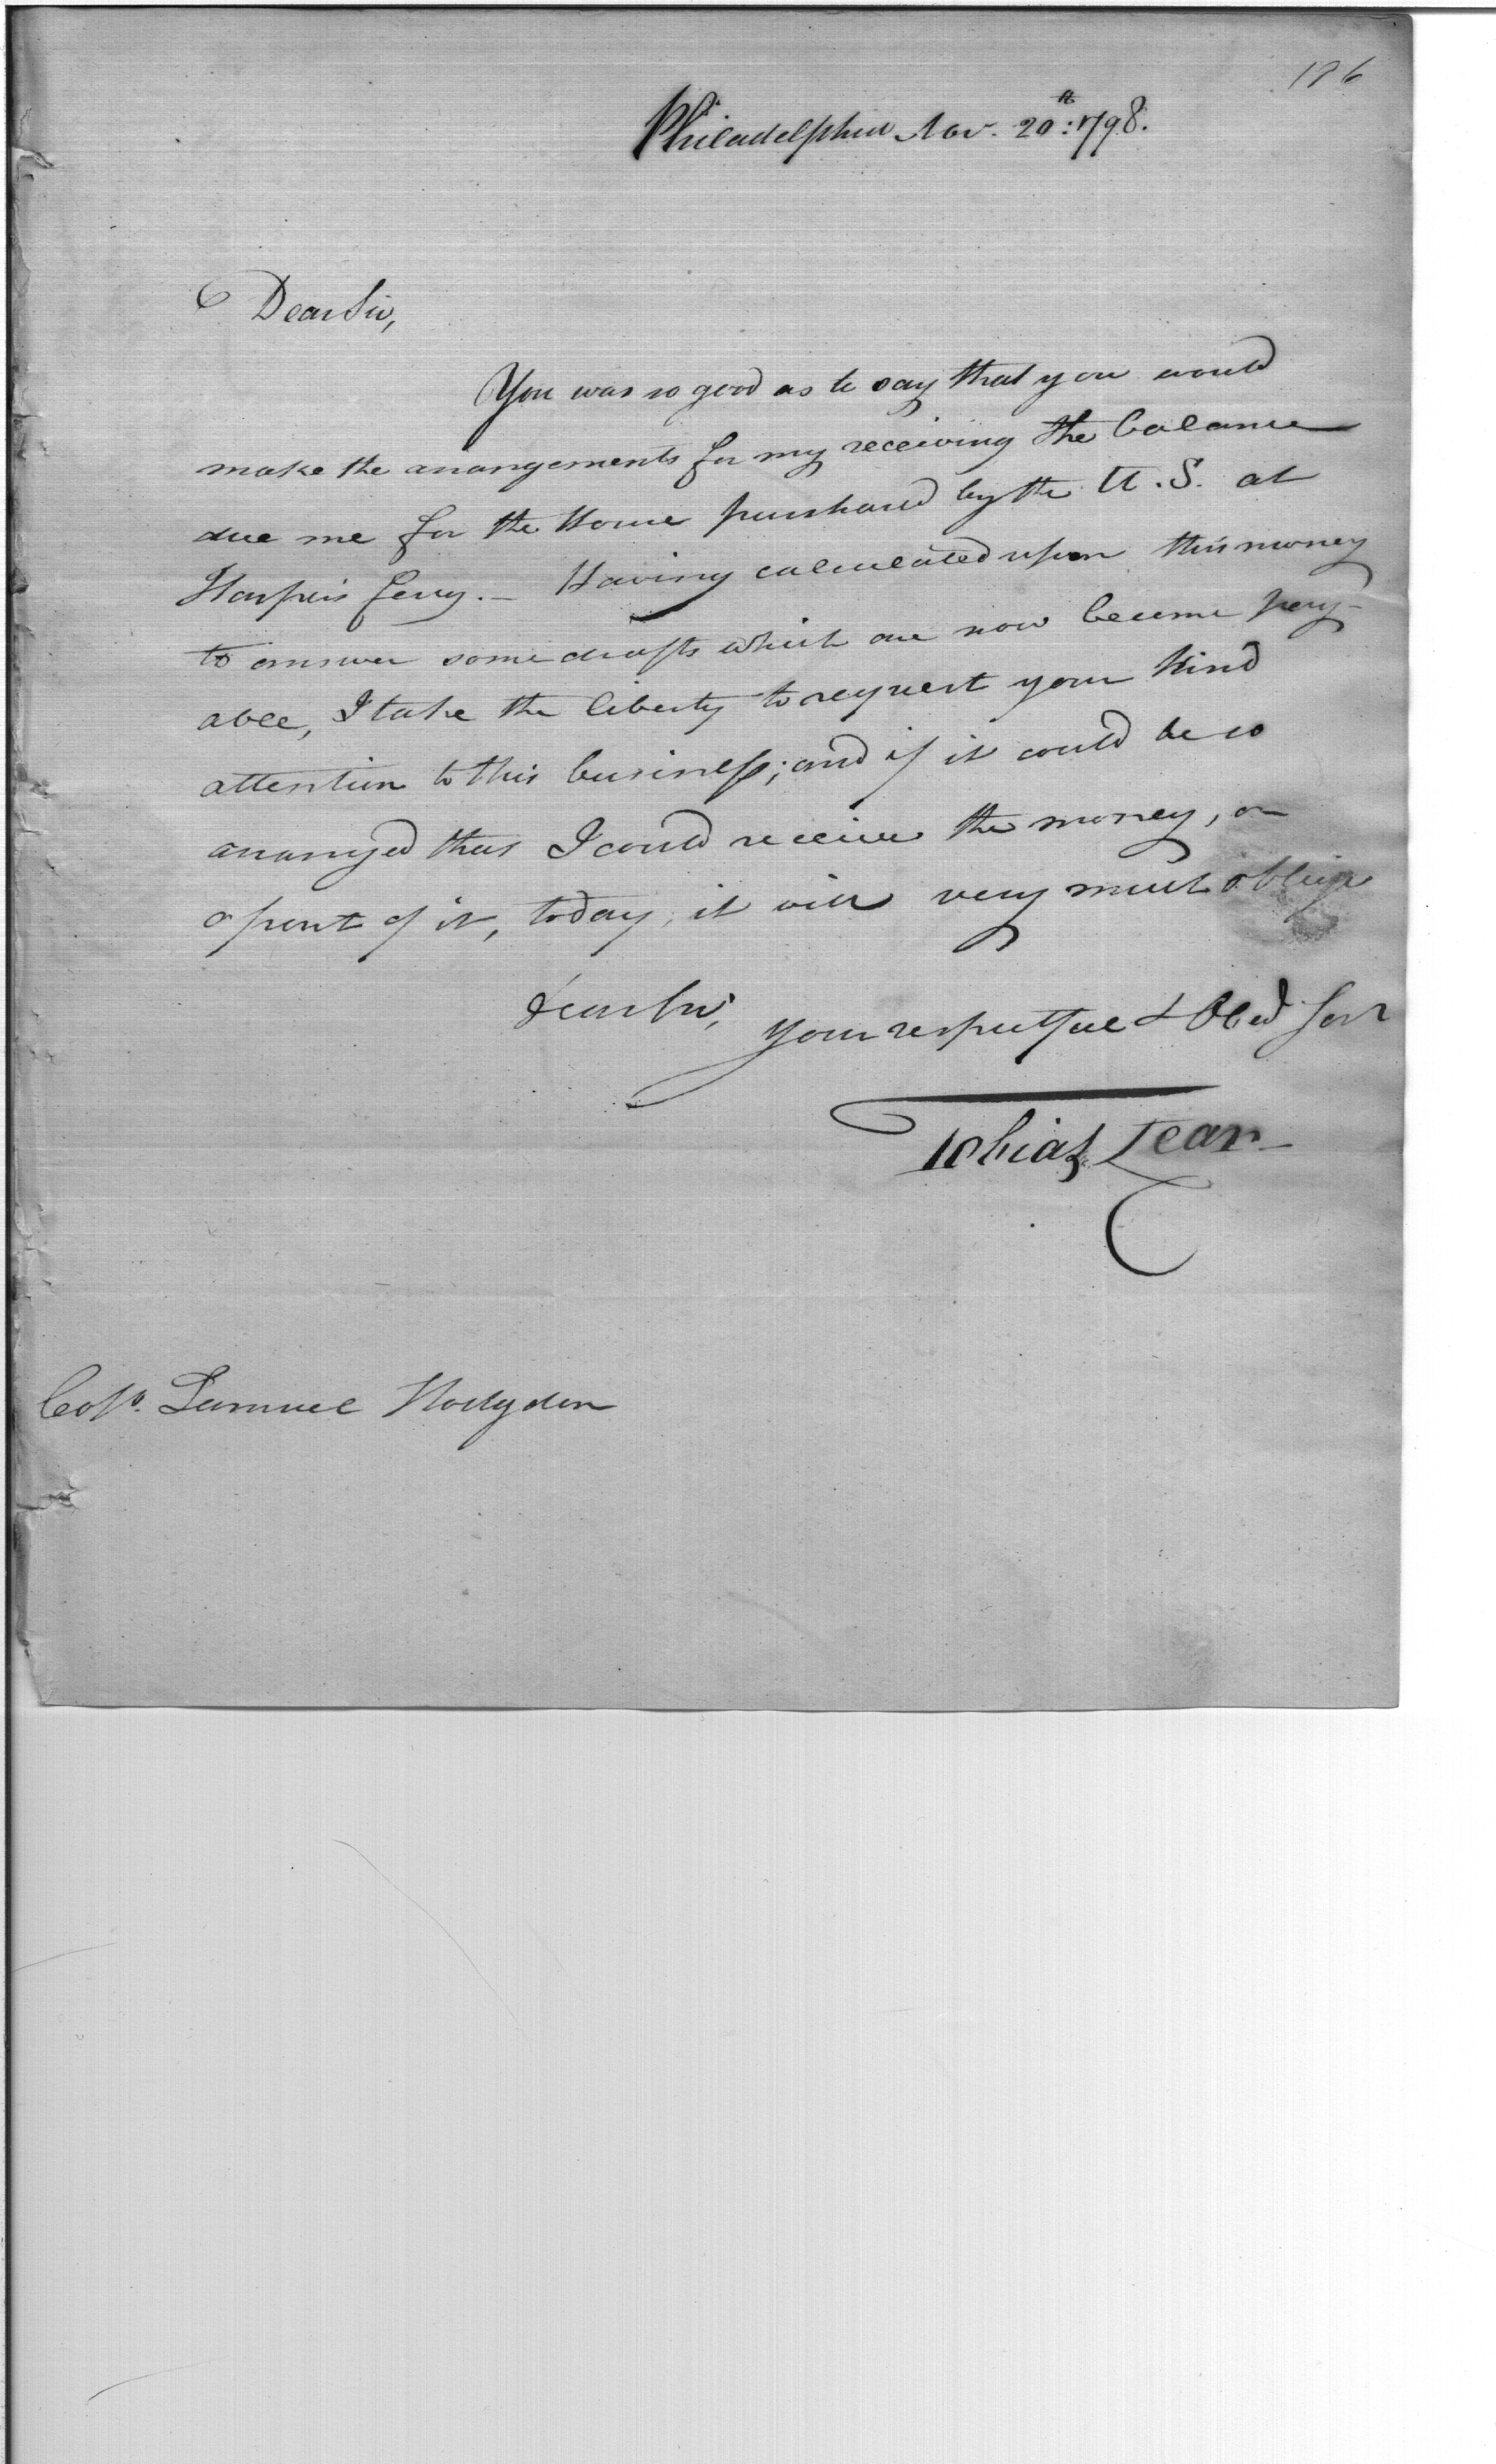 186
Philadelphia Nov. 20th: 1798.
Dear Sir,
You was so good as to say that you would
make the arrangements for my receiving the balance
due me for the House purchased by the U.S. at
Harper's ferry. — Having calculated upon this money
to answer some drafts which are now become pay-
able, I take the liberty to request your kind
attention to this business; and if it could be so
arranged that I could receive the money, or
a part of it, today, it will very much oblige
Dear Sir,
your respectful & Obed Servt
Tobias Lear
Samuel Hodgdon